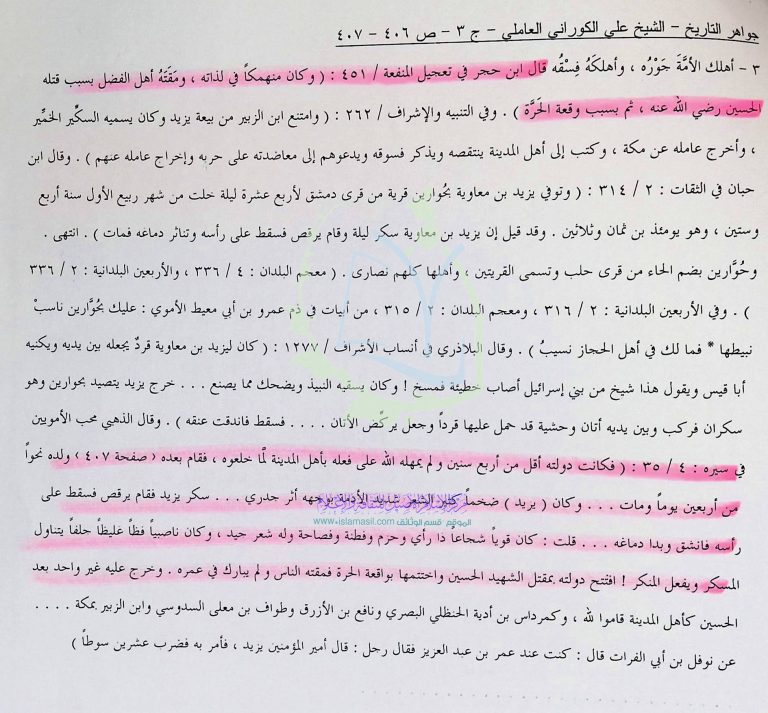 جواهر التاريخ - الشيخ علي الكوراني العاملي - ج ٣ - ص ٤٠٦ - ٤٠٧
٣ - أهلك الأمَّةَ جَوْرُه ، وأهلكَهُ فِسْقُه قال ابن حجر في تعجيل المنفعة / ٤٥١ : ( وكان منهمكاً في لذاته ، ومَقَتَهُ أهل الفضل بسبب قتله
الحسين رضي الله عنه ، ثم بسبب وقعة الحَرَّة ) . وفي التنبيه والإشراف / ٢٦٢ : ( وامتنع ابن الزبير من بيعة يزيد وكان يسميه السكِّير الخمِّير
، وأخرج عامله عن مكة ، وكتب إلى أهل المدينة ينتقصه ويذكر فسوقه ويدعوهم إلى معاضدته على حربه وإخراج عامله عنهم ) . وقال ابن
حبان في الثقات : ٢ / ٣١٤ : ( وتوفي يزيد بن معاوية بحُوارين قرية من قرى دمشق لأربع عشرة ليلة خلت من شهر ربيع الأول سنة أربع
وستين ، وهو يومئذ بن ثمان وثلاثين . وقد قيل إن يزيد بن معاوية سكر ليلة وقام يرقص فسقط على رأسه وتناثر دماغه فمات ) . انتهى .
وحُوَّارين بضم الحاء من قرى حلب وتسمى القريتين ، وأهلها كلهم نصارى . ( معجم البلدان : ٤ / ٣٣٦ ، والأربعين البلدانية : ٢ / ٣٣٦
) . وفي الأربعين البلدانية : ٢ / ٣١٦ ، ومعجم البلدان : ٢ / ٣١٥ ، من أبيات في ذم عمرو بن أبي معيط الأموي : عليك بحُوَّارين ناسبْ
نبيطها * فما لك في أهل الحجاز نسيبُ ) . وقال البلاذري في أنساب الأشراف / ١٢٧٧ : ( كان ليزيد بن معاوية قردٌ يجعله بين يديه ويكنيه
أبا قيس ويقول هذا شيخ من بني إسرائيل أصاب خطيئة فمسخ ! وكان يسقيه النبيذ ويضحك مما يصنع . . . خرج يزيد يتصيد بحوارين وهو
سكران فركب وبين يديه أتان وحشية قد حمل عليها قرداً وجعل يركِّض الأتان . . . . فسقط فاندقت عنقه ) . وقال الذهبي محب الأمويين
في سيره : ٤ / ٣٥ : ( فكانت دولته أقل من أربع سنين ولم يمهله الله على فعله بأهل المدينة لمَّا خلعوه ، فقام بعده ‹ صفحة ٤٠٧ › ولده نحواً
من أربعين يوماً ومات . . . وكان ( يريد ) ضخماً كثير الشعر شديد الأدمة بوجهه أثر جدري . . . سكر يزيد فقام يرقص فسقط على
الموقع - قسم الوثائق www.islamasil.com
رأسه فانشق وبدا دماغه . . . قلت : كان قوياً شجاعاً ذا رأي وحرم وفطنة وفصاحة وله شعر حيد ، وكان ناصبياً فظّاً غليظاً جلفاً يتناول
المسكر ويفعل المنكر ! افتتح دولته بمقتل الشهيد الحسين واختتمها بواقعة الحرة فمقته الناس ولم يبارك في عمره . وخرج عليه غير واحد بعد
الحسين كأهل المدينة قاموا لله ، وكمرداس بن أدية الحنظلي البصري ونافع بن الأزرق وطواف بن معلى السدوسي وابن الزبير بمكة . . . .
عن نوفل بن أبي الفرات قال : كنت عند عمر بن عبد العزيز فقال رجل : قال أمير المؤمنين يزيد ، فأمر به فضرب عشرين سوطاً )